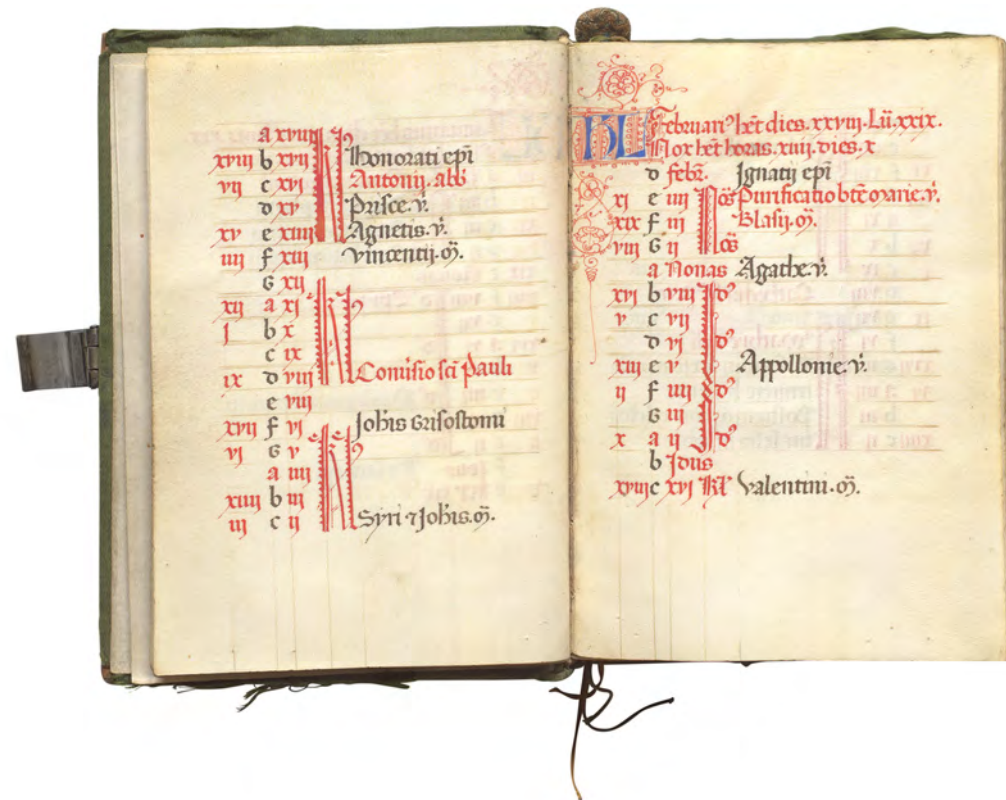 a xviii
xviii b xvii Honorati epi
vii c xvi Antonij. abb
d xv Prisce. v.
xv e xiiii Agnetis. v.
iiii f xiii Vincentii. m.
G xii
xii a xi
j b x
c ix
ix d viii Comisio sci Pauli
e vii
xvii f vi Johis Grisostomi
vi G v
a iiii
xiiii b iii
iii c ii Syri ⁊ Johis. m.
KL Februari⁹ het dies. xxviii. Lu. xxix.
Nox het horas. xiiii. dies. x
d febr. Ignatij epi
xi e iiii Nos Purificatio bte marie. v.
xix f iii Blasij. m.
viii G ii os
a Nonas Agathe. v.
xvi b viii Id⁹
v c vii d⁹
d vi
xiii e v Appollonie. v.
ii f iiii d⁹
G iii
x a ii d⁹
b Idus
xviii c xvi kl Valentini. m.